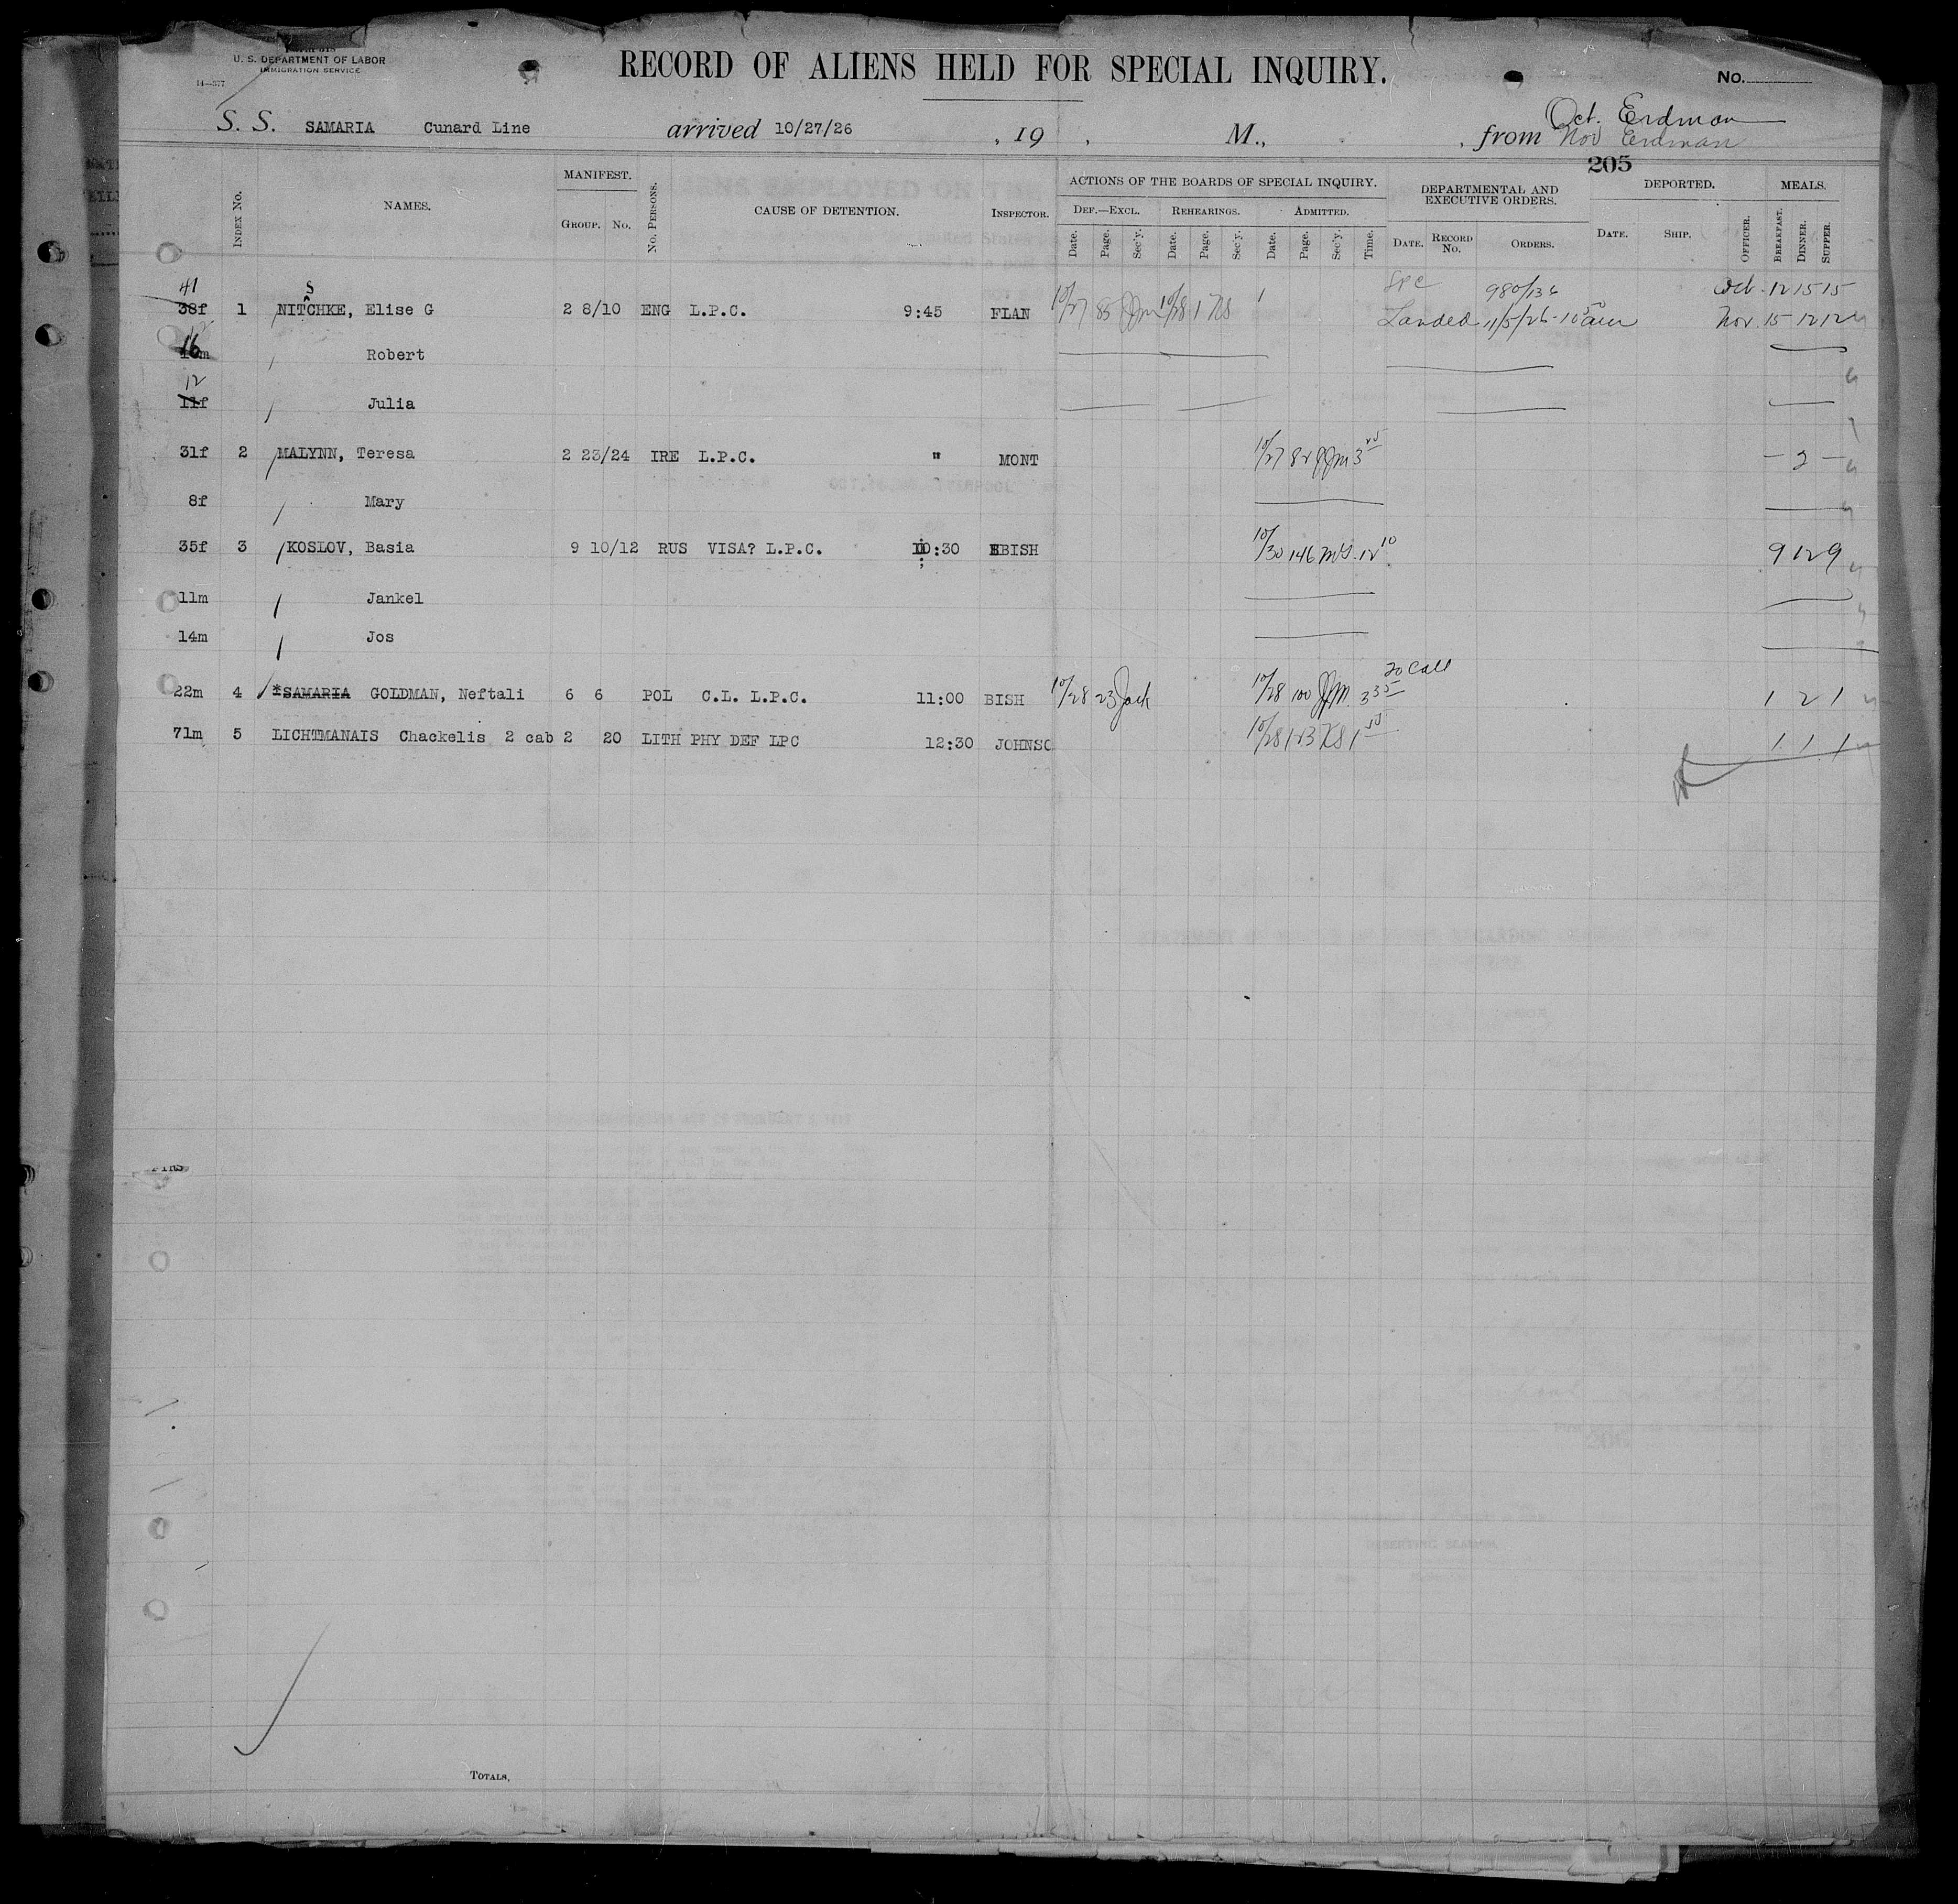 U. S. DEPARTMENT OF LABOR
IMMIGRATION SERVICE
14—577
RECORD OF ALIENS HELD FOR SPECIAL INQUIRY.
No.
Oct. Erdman
S. S. SAMARIA Cunard Line arrived 10/27/26 , 19 , M., , from Nov Erdman
205
INDEX No. NAMES. MANIFEST. GROUP. No. No. PERSONS. CAUSE OF DETENTION. INSPECTOR. ACTIONS OF THE BOARDS OF SPECIAL INQUIRY. DEF.—EXCL. REHEARINGS. ADMITTED. DEPARTMENTAL AND EXECUTIVE ORDERS. DEPORTED. MEALS.
Date. Page. Sec'y. Date. Page. Sec'y. Date. Page. Sec'y. Time. DATE. RECORD No. ORDERS. DATE. SHIP. OFFICER. BREAKFAST. DINNER. SUPPER.
41 S 980/136 Oct 12 15 15
38f 1 NITCHKE, Elise G 2 8/10 ENG L.P.C. 9:45 FLAN 10/27 85 10/28 1 Landed 11/5/26 Nov. 15 12 12
16 Robert
12
11f Julia
31f 2 MALYNN, Teresa 2 23/24 IRE L.P.C. " MONT 10/27 82 3 — 2 —
8f Mary
35f 3 KOSLOV, Basia 9 10/12 RUS VISA? L.P.C. 10:30 BISH 10/30 146 12 10 9 12 9
11m Jankel
14m Jos
22m 4 *SAMARIA GOLDMAN, Neftali 6 6 POL C.L. L.P.C. 11:00 BISH 10/28 23 Jack 10/28 100 3 35 1 2 1
71m 5 LICHTMANAIS Chackelis 2 cab 2 20 LITH PHY DEF LPC 12:30 JOHNSO 10/28 1 1 1
TOTALS,